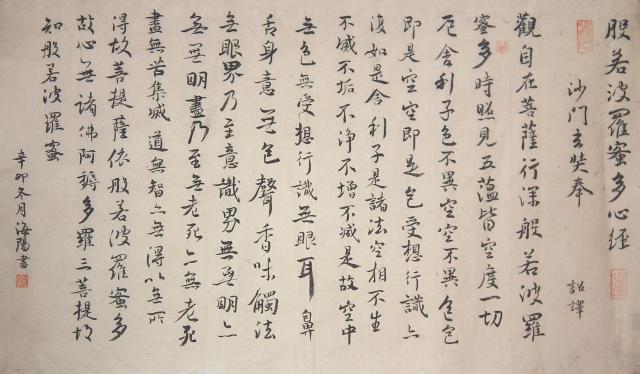 般若波羅蜜多心經
沙門玄奘奉 詔譯
觀自在菩薩行深般若波羅
蜜多時照見五蘊皆空度一切
厄舍利子色不異空空不異色色
即是空空即是色受想行識亦
復如是舍利子是諸法空相不生
不滅不垢不淨不增不減是故空中
無色無受想行識無眼耳鼻
舌身意無色聲香味觸法
無眼界乃至意識界無無明亦
無無明盡乃至無老死亦無老死
盡無苦集滅道無智亦無得以無所
得故菩提薩依般若波羅蜜多
故心無諸佛阿耨多羅三菩提故
知般若波羅蜜
辛卯冬月海陽書